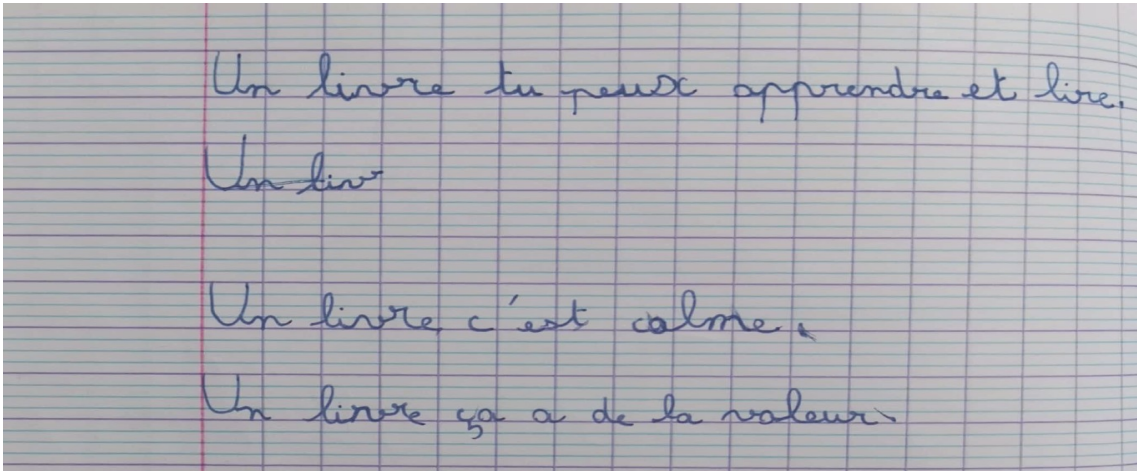 Un livre tu peux apprendre et lire.
Un liv
Un livre c'est calme.
Un livre ça a de la valeur.